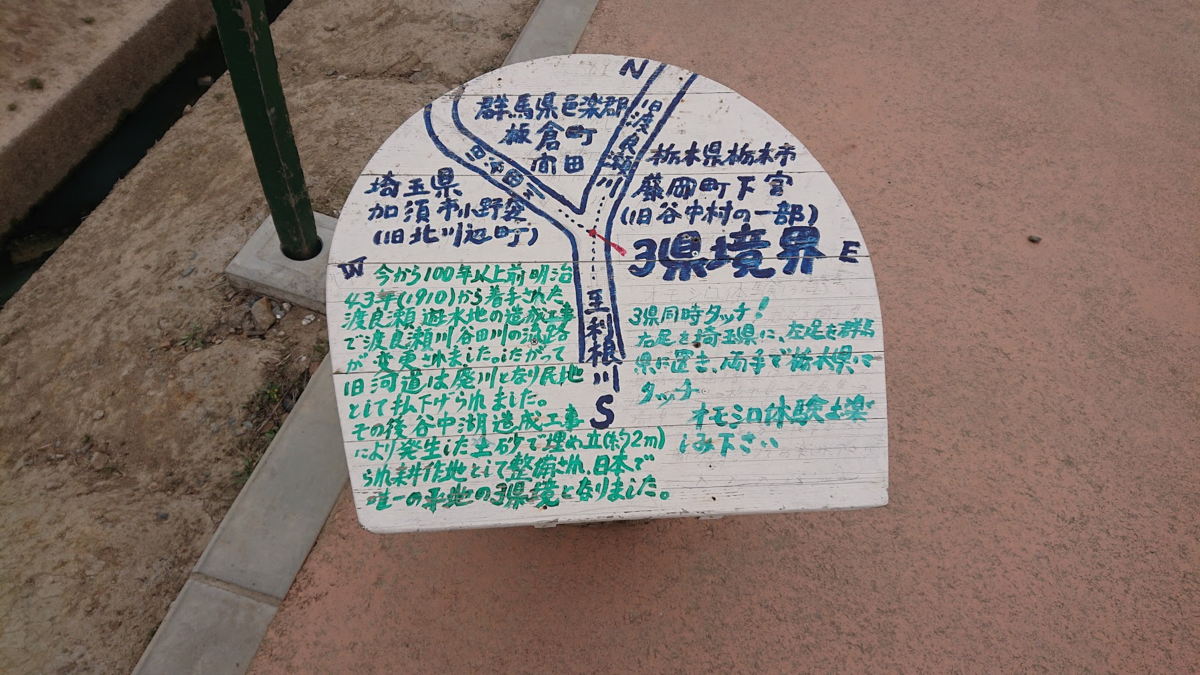 N
群馬県邑楽郡
板倉町
間田
旧渡良瀬川
旧谷田川
栃木県栃木市
藤岡町下宮
(旧谷中村の一部)
埼玉県
加須市小野袋
(旧北川辺町)
3県境界
W
E
今から100年以上前明治
43年(1910)から着手された
渡良瀬遊水地の造成工事
で渡良瀬川谷田川の流路
が変更されました。したがって
旧河道は廃川となり民地
として払下げられました。
その後谷中湖造成工事
により発生した土砂で埋め立(約2m)
られ耕作地として整備され、日本で
唯一の平地の3県境となりました。
至利根川
S
3県同時タッチ!
右足を埼玉県に、左足を群馬
県に置き、両手で栃木県に
タッチ
オモシロ体験お楽
しみ下さい